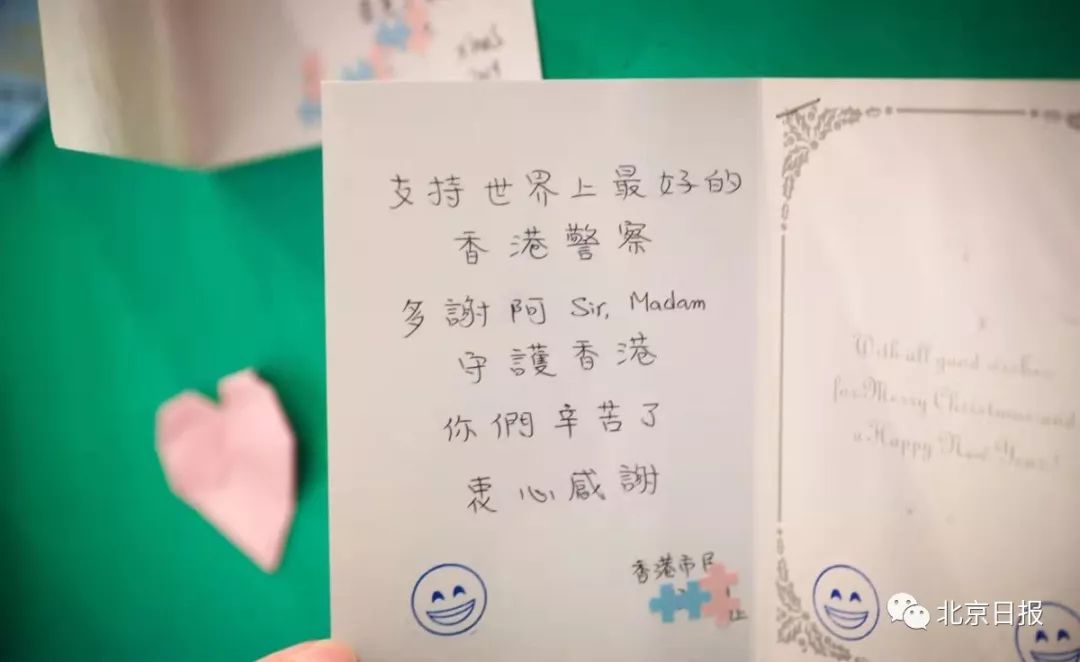 支持世界上最好的
香港警察
多謝阿 Sir, Madam
守護香港
你們辛苦了
衷心感謝
香港市民
上
With all good wishes
for Merry Christmas and
a Happy New Year!
北京日报